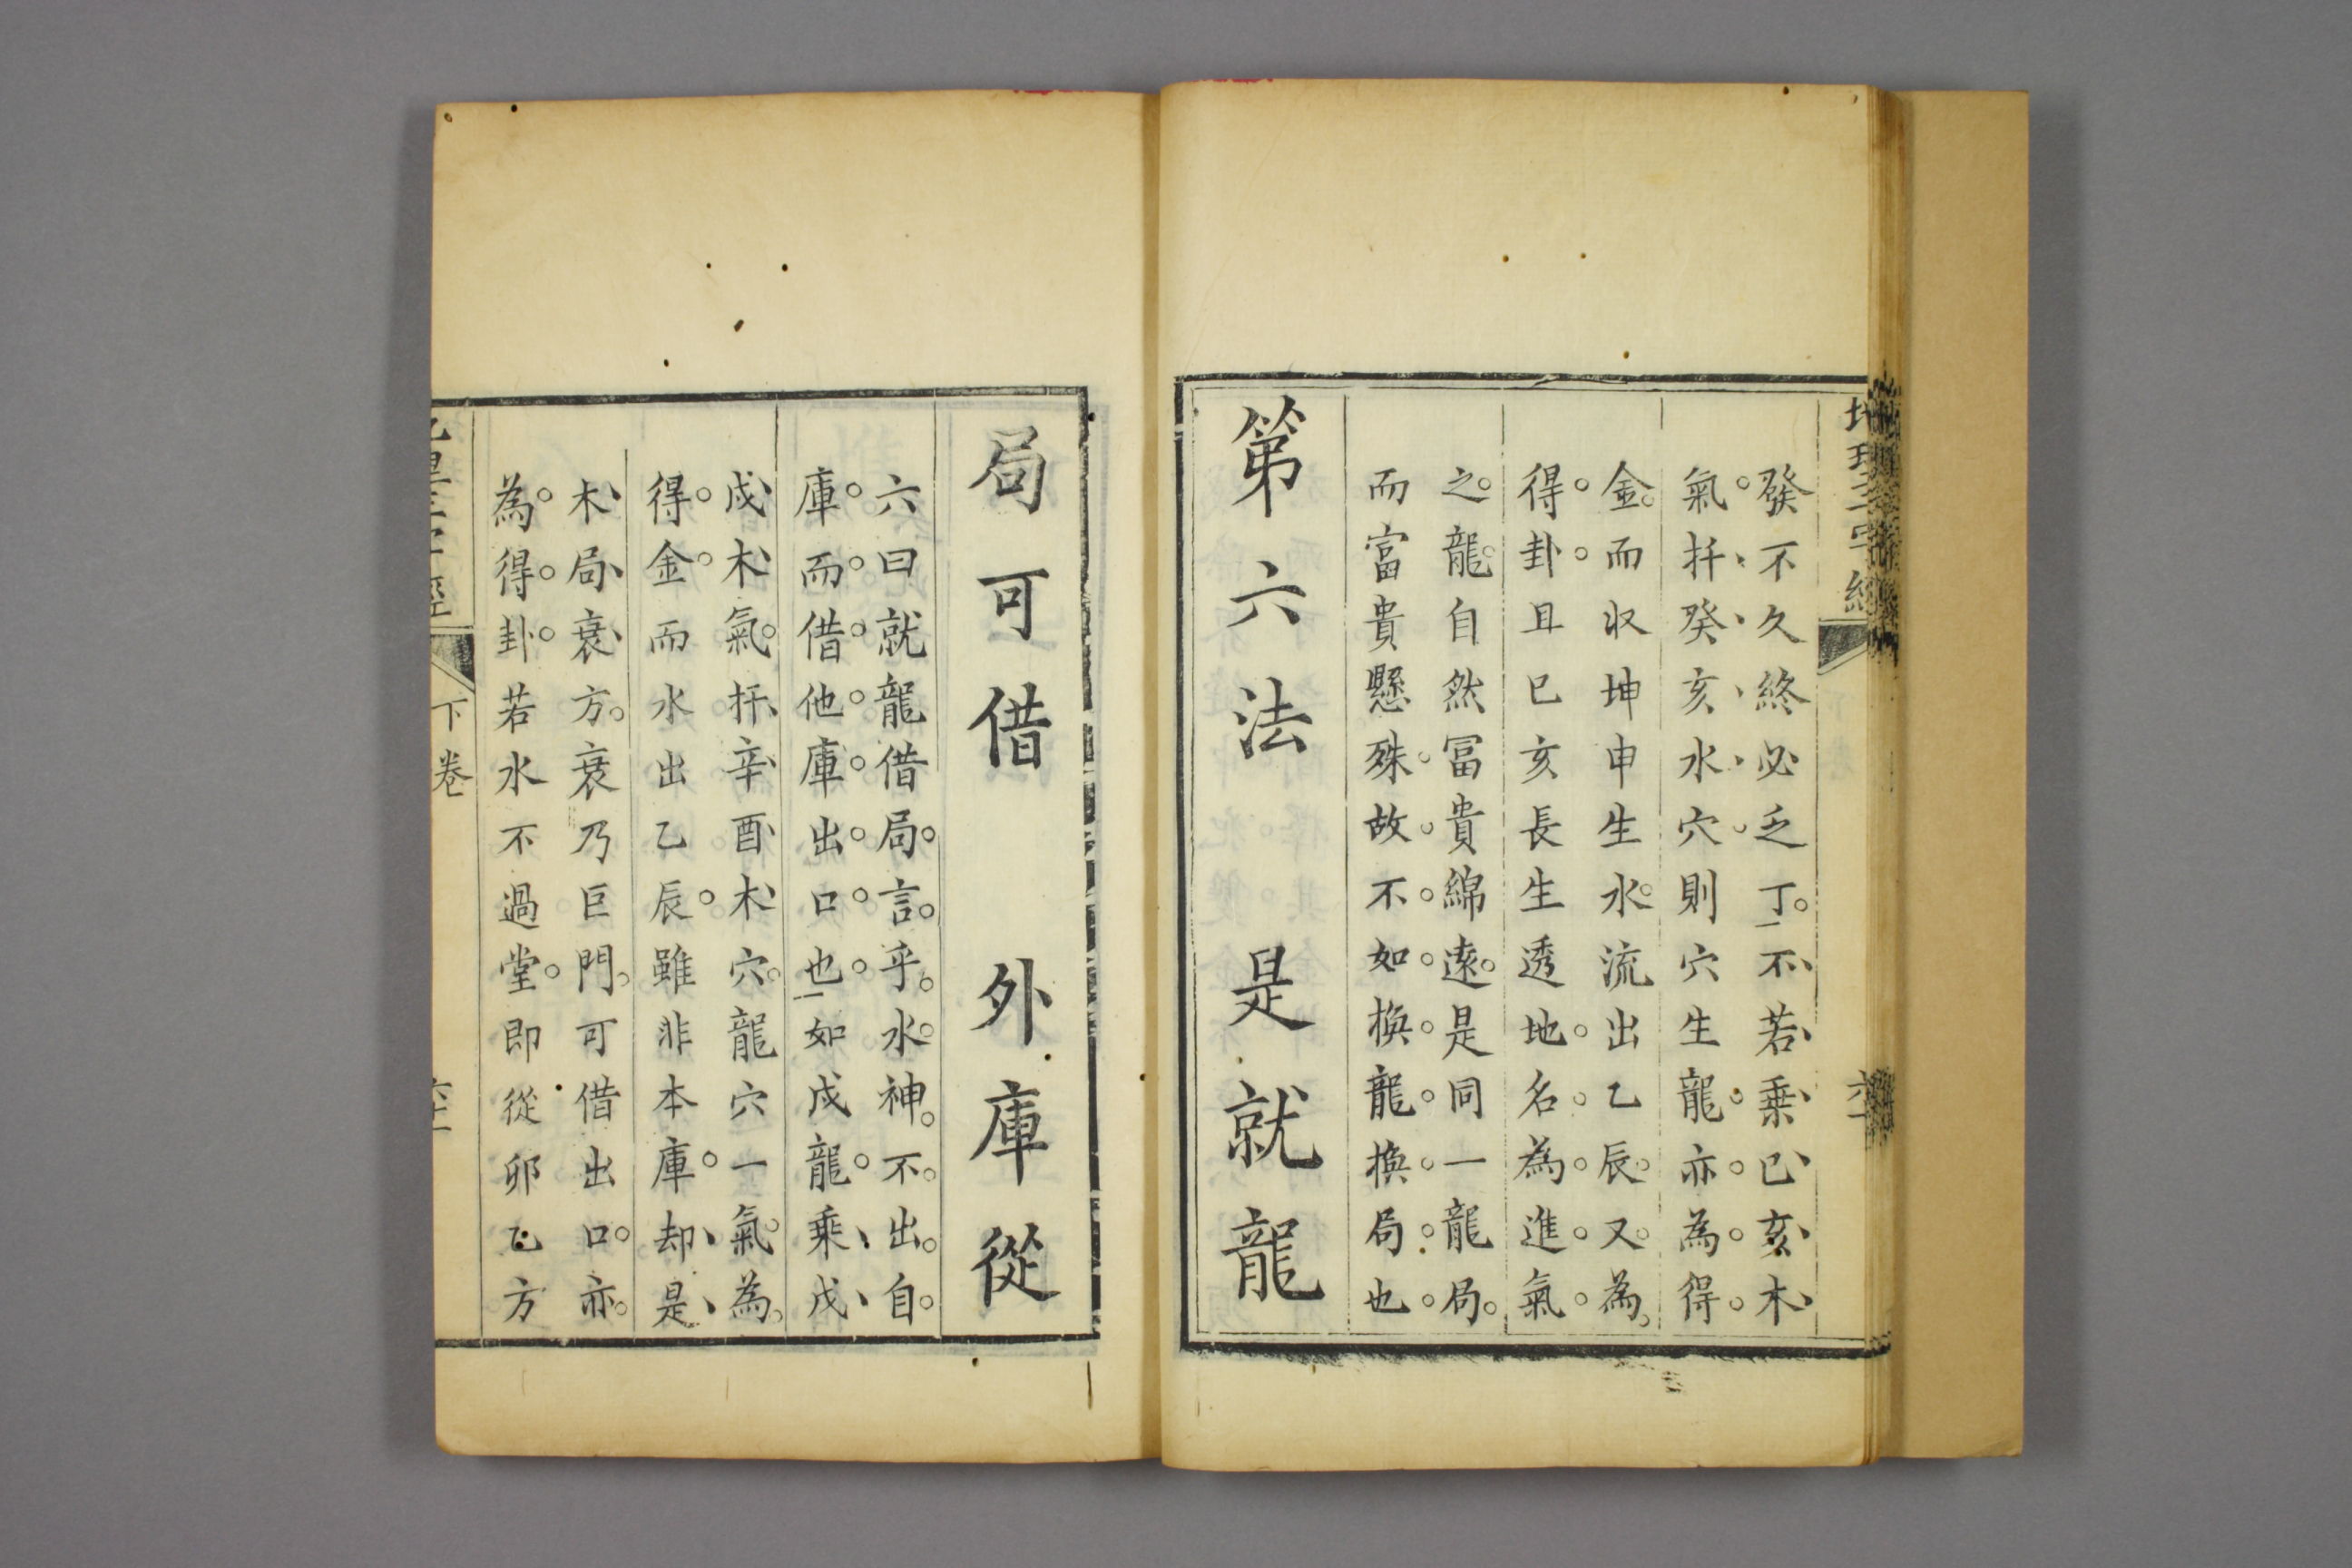 地理三字經 六十
發不久終必乏丁不若乗巳亥木
氣扦癸亥水穴則穴生龍亦為得
金而収坤申生水流出乙辰又為
得卦且巳亥長生透地名為進氣
之龍自然冨貴綿遠是同一龍局
而富貴懸殊故不如換龍換局也
第六法 是就龍
局可借 外庫從
六曰就龍借局言乎水神不出自
庫而借他庫出口也如戌龍乗戌
戌木氣扦辛酉木穴龍穴一氣為
得金而水出乙辰雖非本庫却是
木局衰方衰乃巨門可借出口亦
為得卦若水不過堂即從卯乙方
下卷